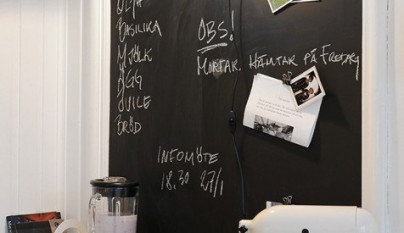 OLJA
BASILIKA
MJÖLK
ÄGG
BRÖD
OBS!
MORFAR HÄMTAR PÅ FREDAG
INFOMÖTE
18.30 27/1